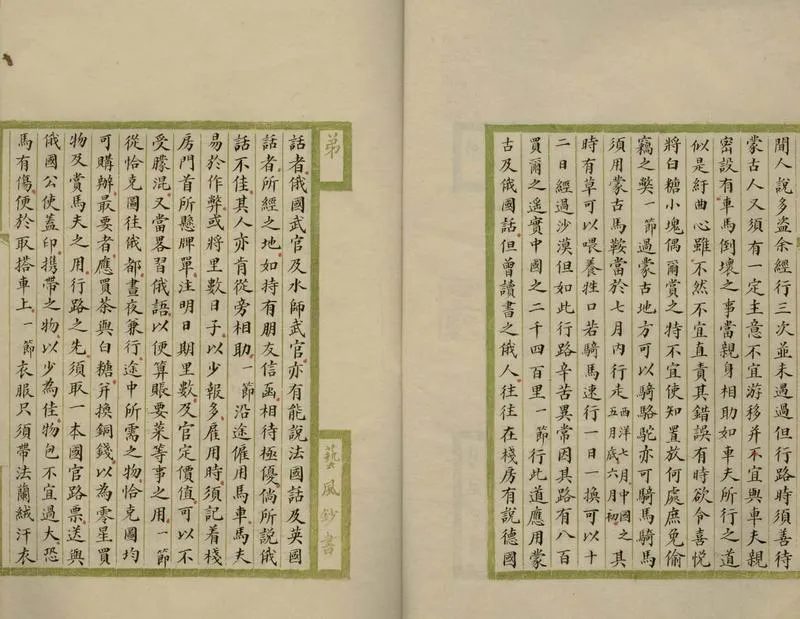 間人說多盜余經行三次並未遇過但行路時須善待
蒙古人又須有一定主意不宜游移并不宜與車夫親
密設有車馬倒壞之事當親身相助如車夫所行之道
似是紆曲心雖不然不宜直責其錯誤有時欲令喜悅
將白糖小塊偶爾賞之特不宜使知置放何處庶免偷
竊之獘一節過蒙古地方可以騎駱駝亦可騎馬騎馬
須用蒙古馬鞍當於七月內行走西洋七月中國之五月底六月初其
時有草可以喂養牲口若騎馬速行一日一換可以十
二日經過沙漠但如此行路辛苦異常因其路有八百
買爾之遥實中國之二千四百里一節行此道應用蒙
古及俄國話但曾讀書之俄人往往在棧房有說德國
話者俄國武官及水師武官亦有能說法國話及英國
話者所經之地如持有朋友信函相待極優倘所說俄
話不佳其人亦肯從旁相助一節沿途僱用馬車馬夫
易於作弊或將里數日子以少報多雇用時須記着棧
房門首所懸牌單注明日期里數及官定價值可以不
受朦混又當畧習俄語以便算賬要菜等事之用一節
從恰克圖往俄都晝夜兼行途中所需之物恰克圖均
可購辦最要者應買茶與白糖并換銅錢以為零星買
物及賞馬夫之用行路之先須取一本國官路票送與
俄國公使蓋印攜帶之物以少為佳物包不宜過大恐
馬有傷便於取搭車上一節衣服只須帶法蘭絨汗衣
弟
藝風鈔書